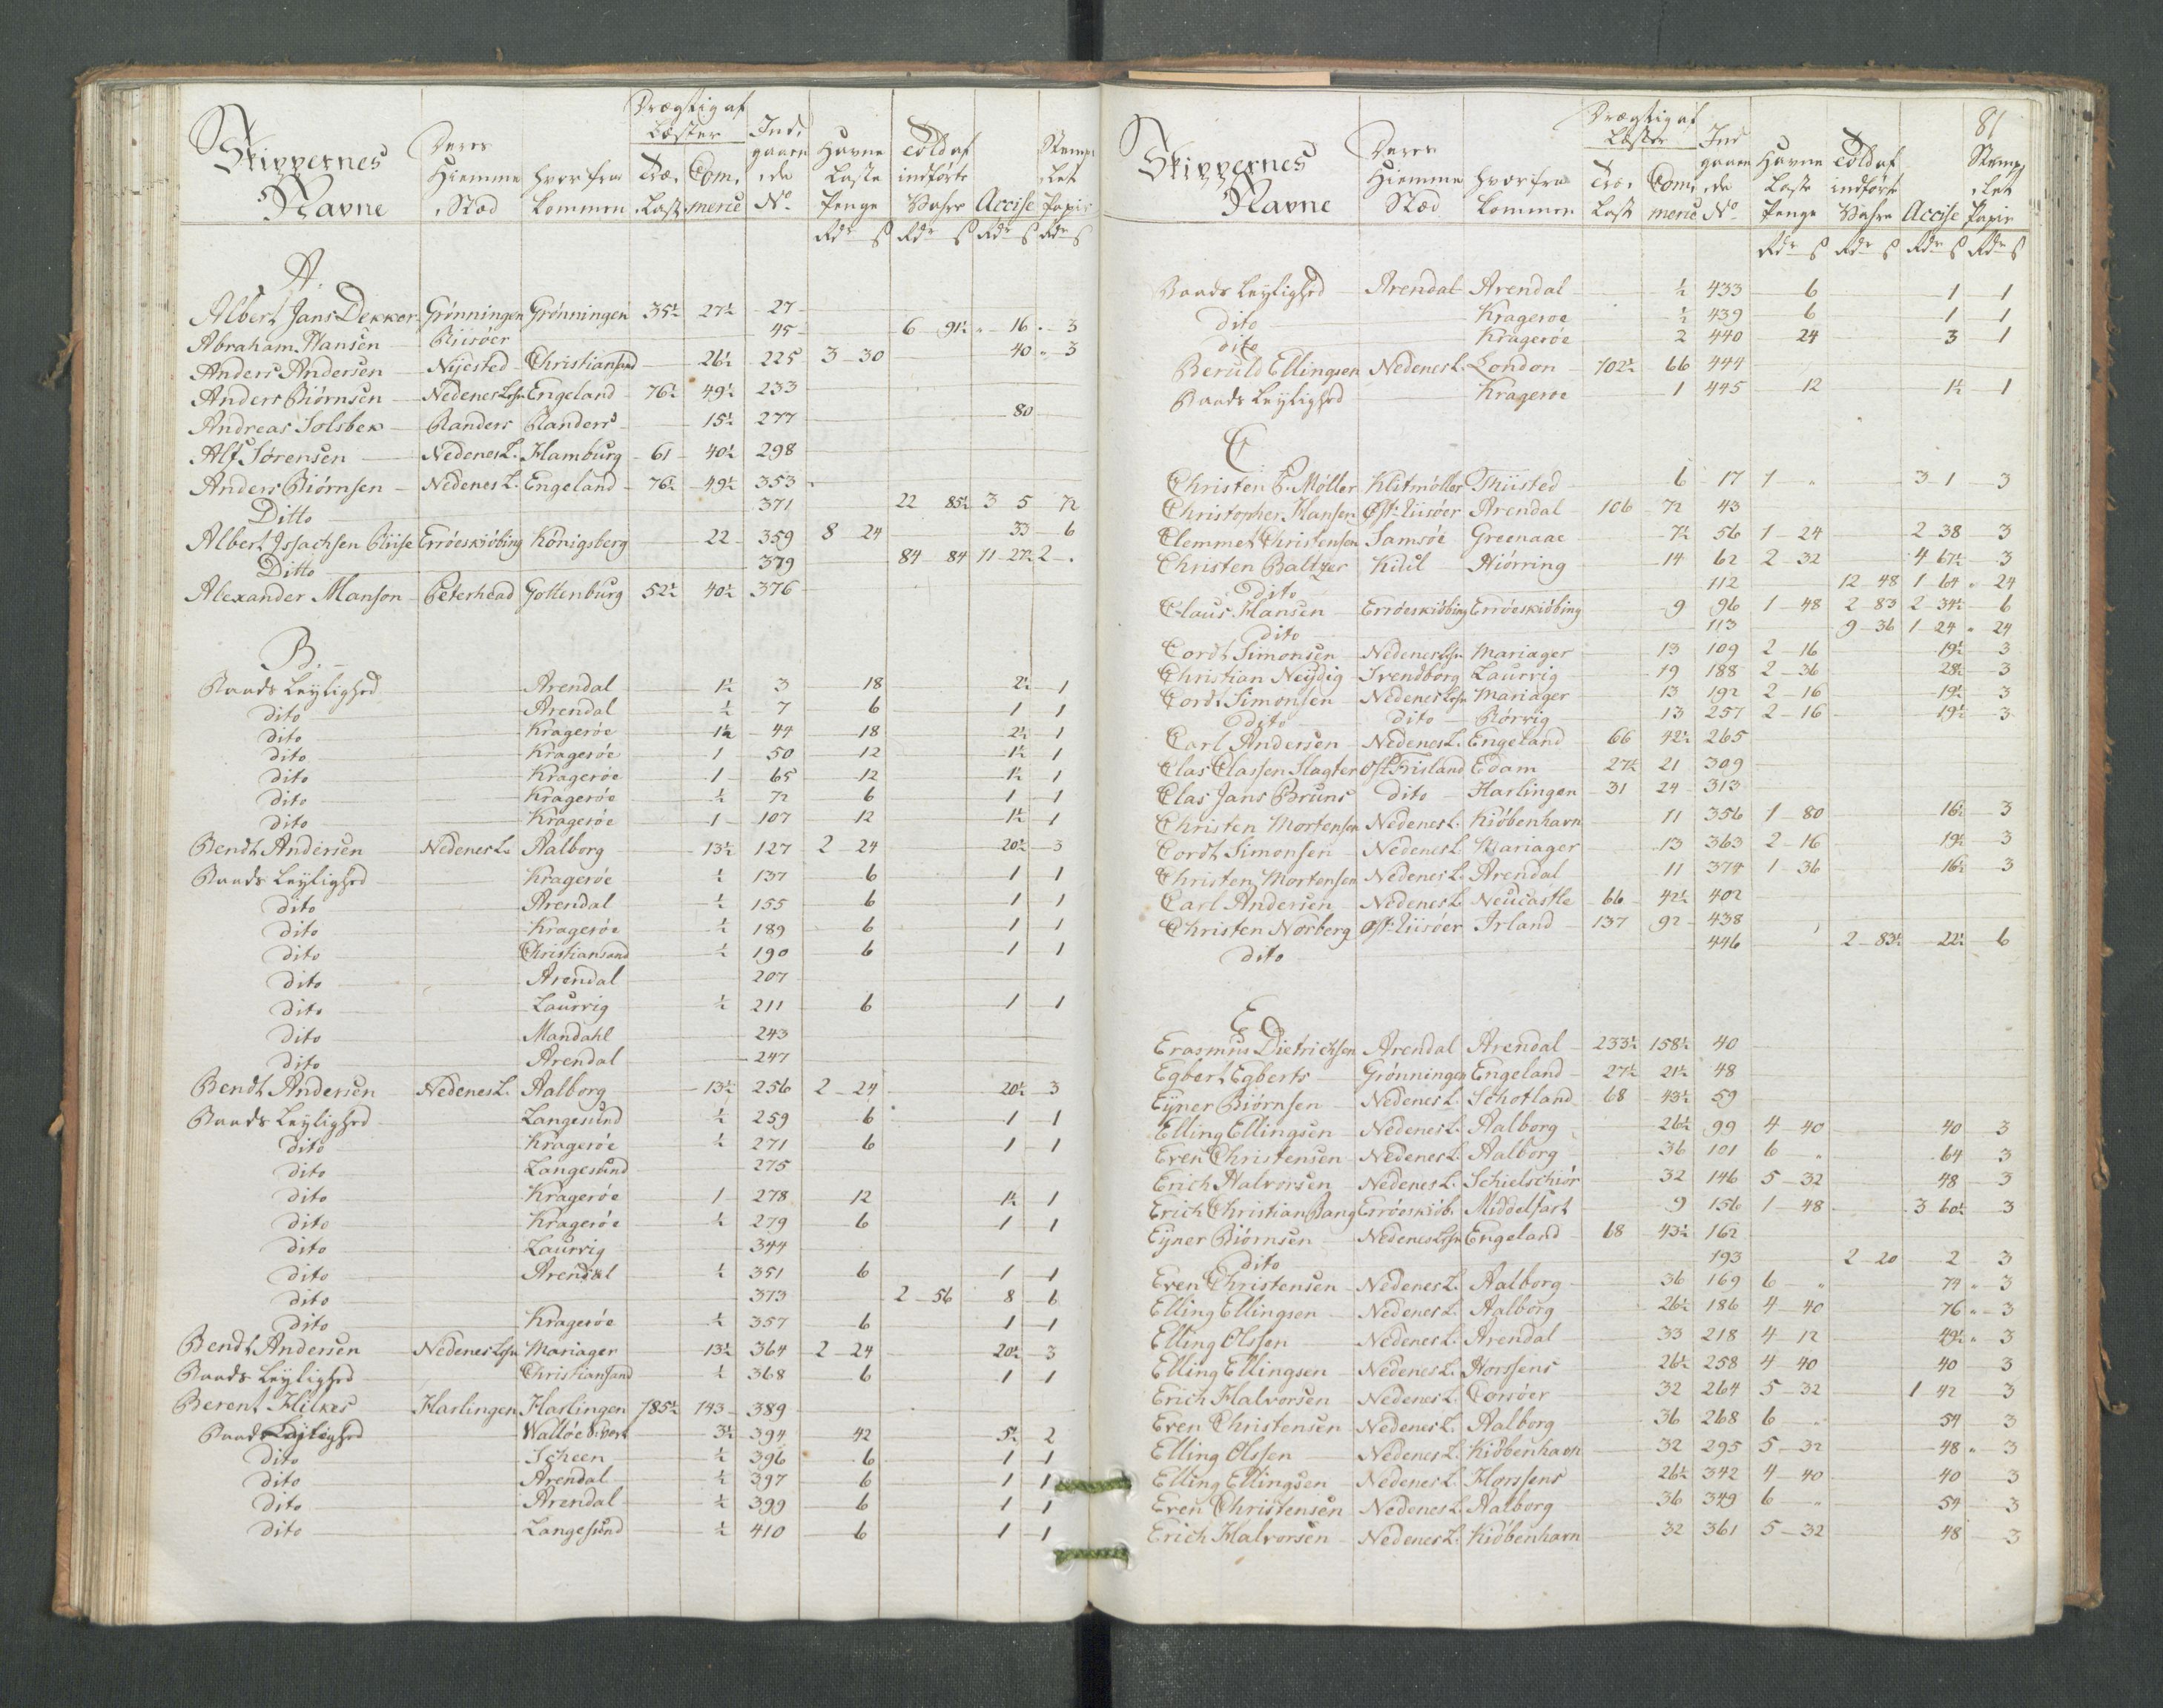 Skippernes Navne | Deres Hiemme Stæd | hvor fra kommen | Drægtig af Læster | Træ Last | Com merce | Ind gaaen de No | Havne Laste Penge | Told af indførte Vahre | Accise | Stemp let Papir
Rdr ß | Rdr ß | Rdr ß | Rdr ß
A.
Albert Jans Dekker Grønningen Grønningen 35½ 27½ 27
Abraham Hansen Riisøer 45 6 91½ " 16 " 3
Anders Andersen Nijested Christiansand 26½ 225 3 30 40 " 3
Anders Biørnsen Nedenes Lehn Engeland 76½ 49½ 233
Andreas Solsbek Randers Randers 15½ 277 80
Alf Sørensen Nedenes L. Hamburg 61 40½ 298
Anders Biørnsen Nedenes L. Engeland 76½ 49½ 353
Ditto 371 22 85½ 3 5 72
Albert Issachsen Riise Errøeskiøbing Königsberg 22 359 8 24 33 6
Ditto 379 84 84 11 27½ 2 "
Alexander Manson Peterhead Gottenburg 52½ 40½ 376
B.
Baads Leylighed Arendal 1½ 3 18 2½ 1
dito Arendal ½ 7 6 1 1
dito Kragerøe 1½ 44 18 2½ 1
dito Kragerøe 1 50 12 1½ 1
dito Kragerøe 1 65 12 1½ 1
dito Kragerøe ½ 72 6 1 1
dito Kragerøe 1 107 12 1½ 1
Bendt Andersen Nedenes L. Aalborg 13½ 127 2 24 20½ 3
Baads Leylighed Kragerøe ½ 137 6 1 1
dito Arendal ½ 155 6 1 1
dito Kragerøe ½ 189 6 1 1
dito Christiansand ½ 190 6 1 1
dito Arendal 207
dito Laurvig ½ 211 6 1 1
dito Mandahl 243
dito Arendal 247
Bendt Andersen Nedenes L. Aalborg 13½ 256 2 24 20½ 3
Baads Leylighed Langesund ½ 259 6 1 1
dito Kragerøe ½ 271 6 1 1
dito Langesund 275
dito Kragerøe 1 278 12 1½ 1
dito Kragerøe ½ 279 6 1 1
dito Laurvig 344
dito Arendal ½ 351 6 1 1
dito 373 2 56 8 6
dito Kragerøe ½ 357 6 1 1
Bendt Andersen Nedenes Lehn Mariager 13½ 364 2 24 20½ 3
Baads Leylighed Christiansand ½ 368 6 1 1
Berent Hilkes Harlingen Harlingen 185½ 143 389
Baads Leylighed Walløe 3½ 394 42 5½ 2
dito Scheen ½ 396 6 1 1
dito Arendal ½ 397 6 1 1
dito Arendal ½ 399 6 1 1
dito Langesund ½ 410 6 1 1
81
Skippernes Navne | Deres Hiemme Stæd | hvor fra kommen | Drægtig af Læster | Træ Last | Com merce | Ind gaaen de No | Havne Laste Penge | Told af indførte Vahre | Accise | Stemp let Papir
Rdr ß | Rdr ß | Rdr ß | Rdr ß
Baads Leylighed Arendal Arendal ½ 433 6 1 1
dito Kragerøe ½ 439 6 1 1
dito Kragerøe 2 440 24 3 1
Beruld Ellingsen Nedenes L. London 102½ 66 444
Baads Leylighed Kragerøe 1 445 12 1½ 1
C.
Christen P. Møller Klitmøller Thiisted 6 17 1 " 3 1 3
Christopher Hansen Øst-Riisøer Arendal 106 72 43
Clemmet Christensen Samsøe Greenaae 7½ 56 1 24 2 38 3
Christen Baltzer Kidil Hiørring 14 62 2 32 4 67½ 3
dito 112 12 48 1 64 " 24
Claus Hansen Errøeskiøbing Errøeskiøbing 9 96 1 48 2 83 2 34½ 6
dito 113 9 36 1 24 " 24
Cordt Simonsen Nedenes Lehn Mariager 13 109 2 16 19½ 3
Christian Neydig Svendborg Laurvig 19 188 2 36 28½ 3
Cordt Simonsen Nedenes Lehn Mariager 13 192 2 16 19½ 3
dito dito Rørvig 13 257 2 16 19½ 3
Carl Andersen Nedenes L. Engeland 66 42½ 265
Clas Classen Slagter Ost Frisland Edam 27½ 21 309
Clas Jans Bruns dito Harlingen 31 24 313
Christen Mortensen Nedenes L. Kiøbenhavn 11 356 1 80 16½ 3
Cordt Simonsen Nedenes L. Mariager 13 363 2 16 19½ 3
Christen Mortensen Nedenes L. Arendal 11 374 1 36 16½ 3
Carl Andersen Nedenes L. Neucastle 66 42½ 402
Christen Norberg Øst-Riisøer Irland 137 92 438
dito 446 2 83½ 22½ 6
E.
Erasmus Dietrichsen Arendal Arendal 233½ 158½ 40
Egbert Egberts Grønningen Engeland 27½ 21½ 48
Eyner Biørnsen Nedenes L. Schotland 68 43½ 59
Elling Ellingsen Nedenes L. Aalborg 26½ 99 4 40 40 3
Even Christensen Nedenes L. Aalborg 36 101 6 " 64 3
Erich Halvorsen Nedenes L. Schielschiør 32 146 5 32 48 3
Erich Christian Bang Errøeskiøb. Middelfart 9 156 1 48 3 60½ 3
Eyner Biørnsen Nedenes Lehn Engeland 68 43½ 162
dito 193 2 20 2 3
Even Christensen Nedenes L. Aalborg 36 169 6 " 74 " 3
Elling Ellingsen Nedenes L. Aalborg 26½ 186 4 40 76 " 3
Elling Olssen Nedenes L. Arendal 33 218 4 12 49½ " 3
Elling Ellingsen Nedenes L. Horssens 26½ 258 4 40 40 3
Erich Halvorsen Nedenes L. Corsøer 32 264 5 32 1 42 3
Even Christensen Nedenes L. Aalborg 36 268 6 " 54 3
Elling Olssen Nedenes L. Kiøbenhavn 32 295 5 32 48 " 3
Elling Ellingsen Nedenes L. Horssens 26½ 342 4 40 40 3
Even Christensen Nedenes L. Aalborg 36 349 6 " 54 3
Erich Halvorsen Nedenes L. Kiøbenhavn 32 361 5 32 48 3